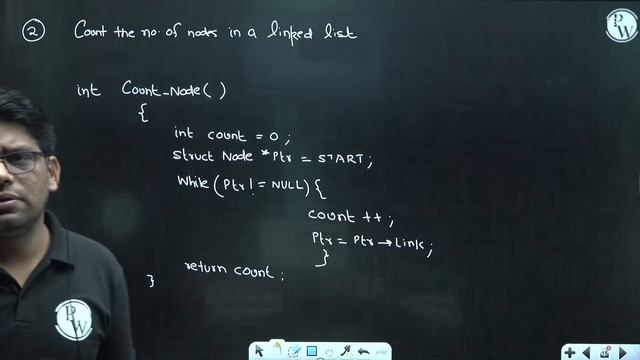 ② Count the no. of nodes in a linked list
int Count_Node( )
{
int count = 0 ;
struct Node *Ptr = START ;
While (Ptr != NULL) {
Count ++ ;
Ptr = Ptr → Link ;
}
return count ;
}
PW
PW